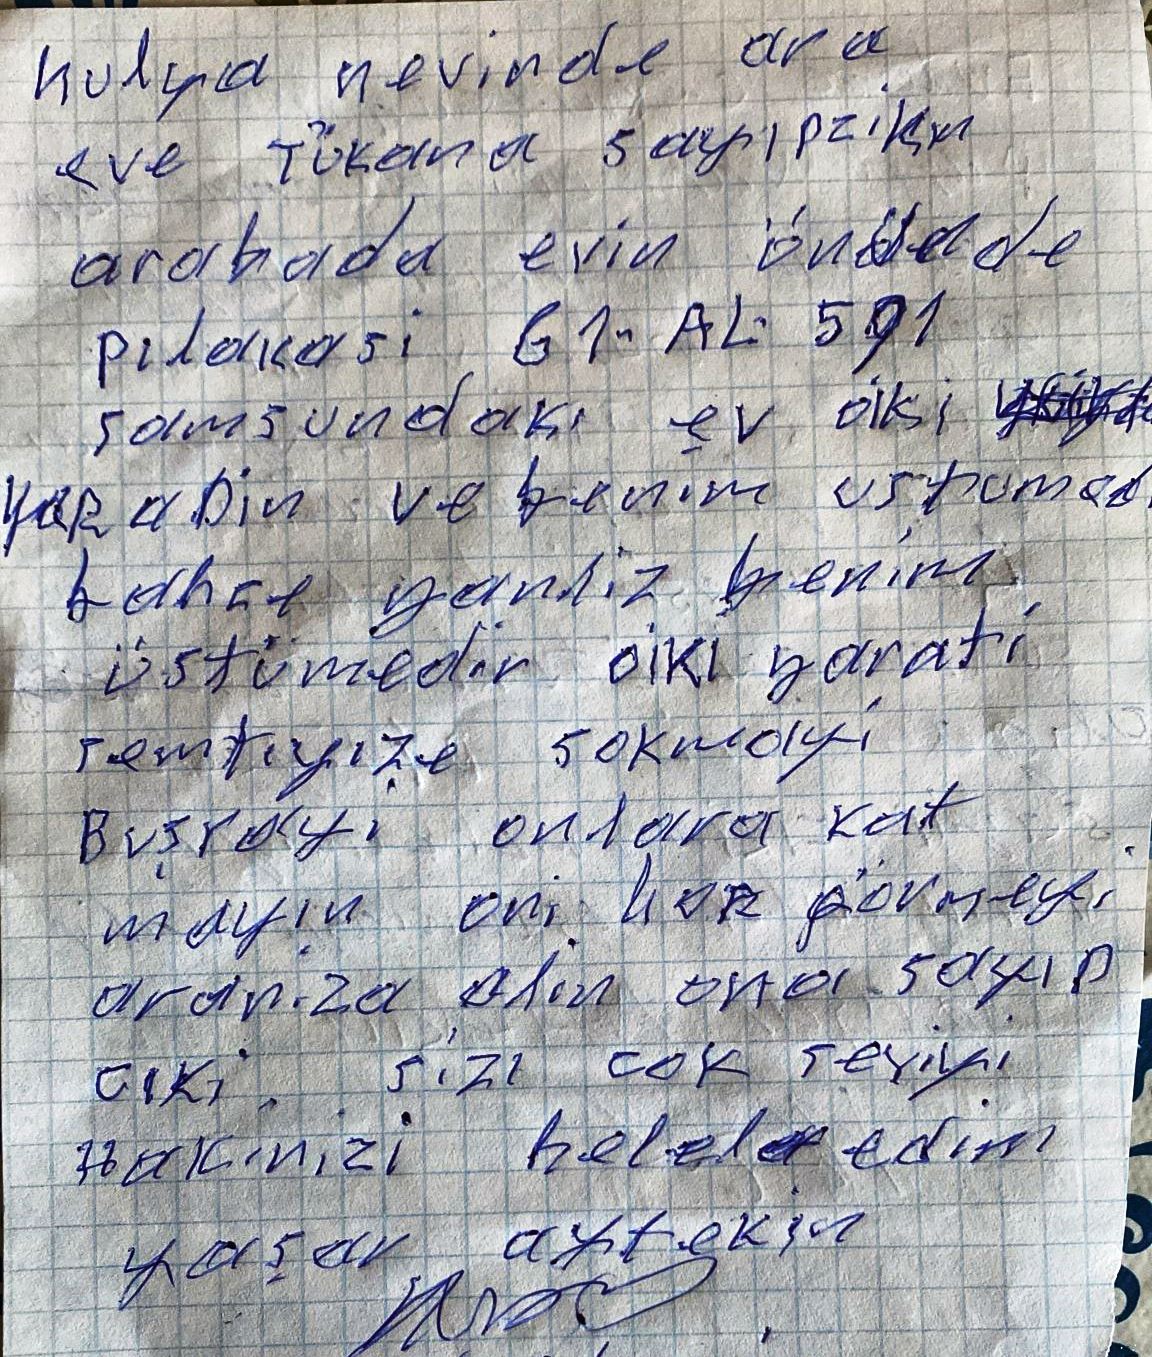 hulya nevinde ara
eve Tükana sayıpzikın
arabada evin önünde
pılakasi 61. AL. 591
samsundaki ev oiki
Kapadin ve benim ustumedi
bahce yanliz benim
üstümedir oiki yarati
semtiyize sokmayi
Buşrayi onlara kat
mayin oni hor görmeyi
araniza alin ona sayıp
ciki. sizi cok seviyi
Hakinizi helel edim
yaşar aytekin